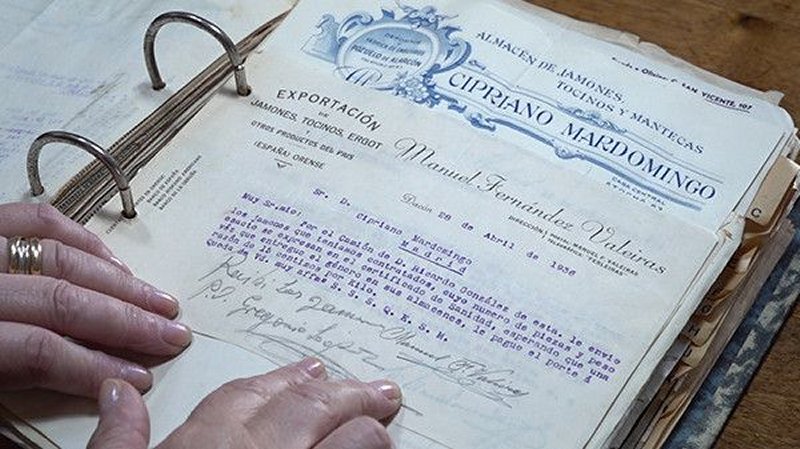 POZUELO DE ALARCÓN
ALMACÉN DE JAMONES,
TOCINOS Y MANTECAS
CIPRIANO MARDOMINGO
CASA CENTRAL
SAN VICENTE, 107
EXPORTACIÓN
DE
JAMONES, TOCINOS, ERGOT
Y
OTROS PRODUCTOS DEL PAIS
(ESPAÑA) ORENSE
Manuel Fernández Valeiras
DIRECCIÓN POSTAL: MANUEL F. VALEIRAS
Dacón 28 de Abril de 1936
Sr. D. Cipriano Mardomingo
Madrid
Muy Sr. mio: Por el Camión de D. Ricardo González de esta, le envio
los jamones que teniamos contratados, cuyo numero de piezas y peso
exacto se expresan en el certificado de Sanidad, esperando que una
vez entregue el género en sus almacenes, le pague el porte á
razón de 15 centimos por Kilo.
Queda de Vd. muy affmo S. S. S. Q. E. S. M.
Recibi los jamones
P.O. Gregorio López
Manuel F. Valeiras
C